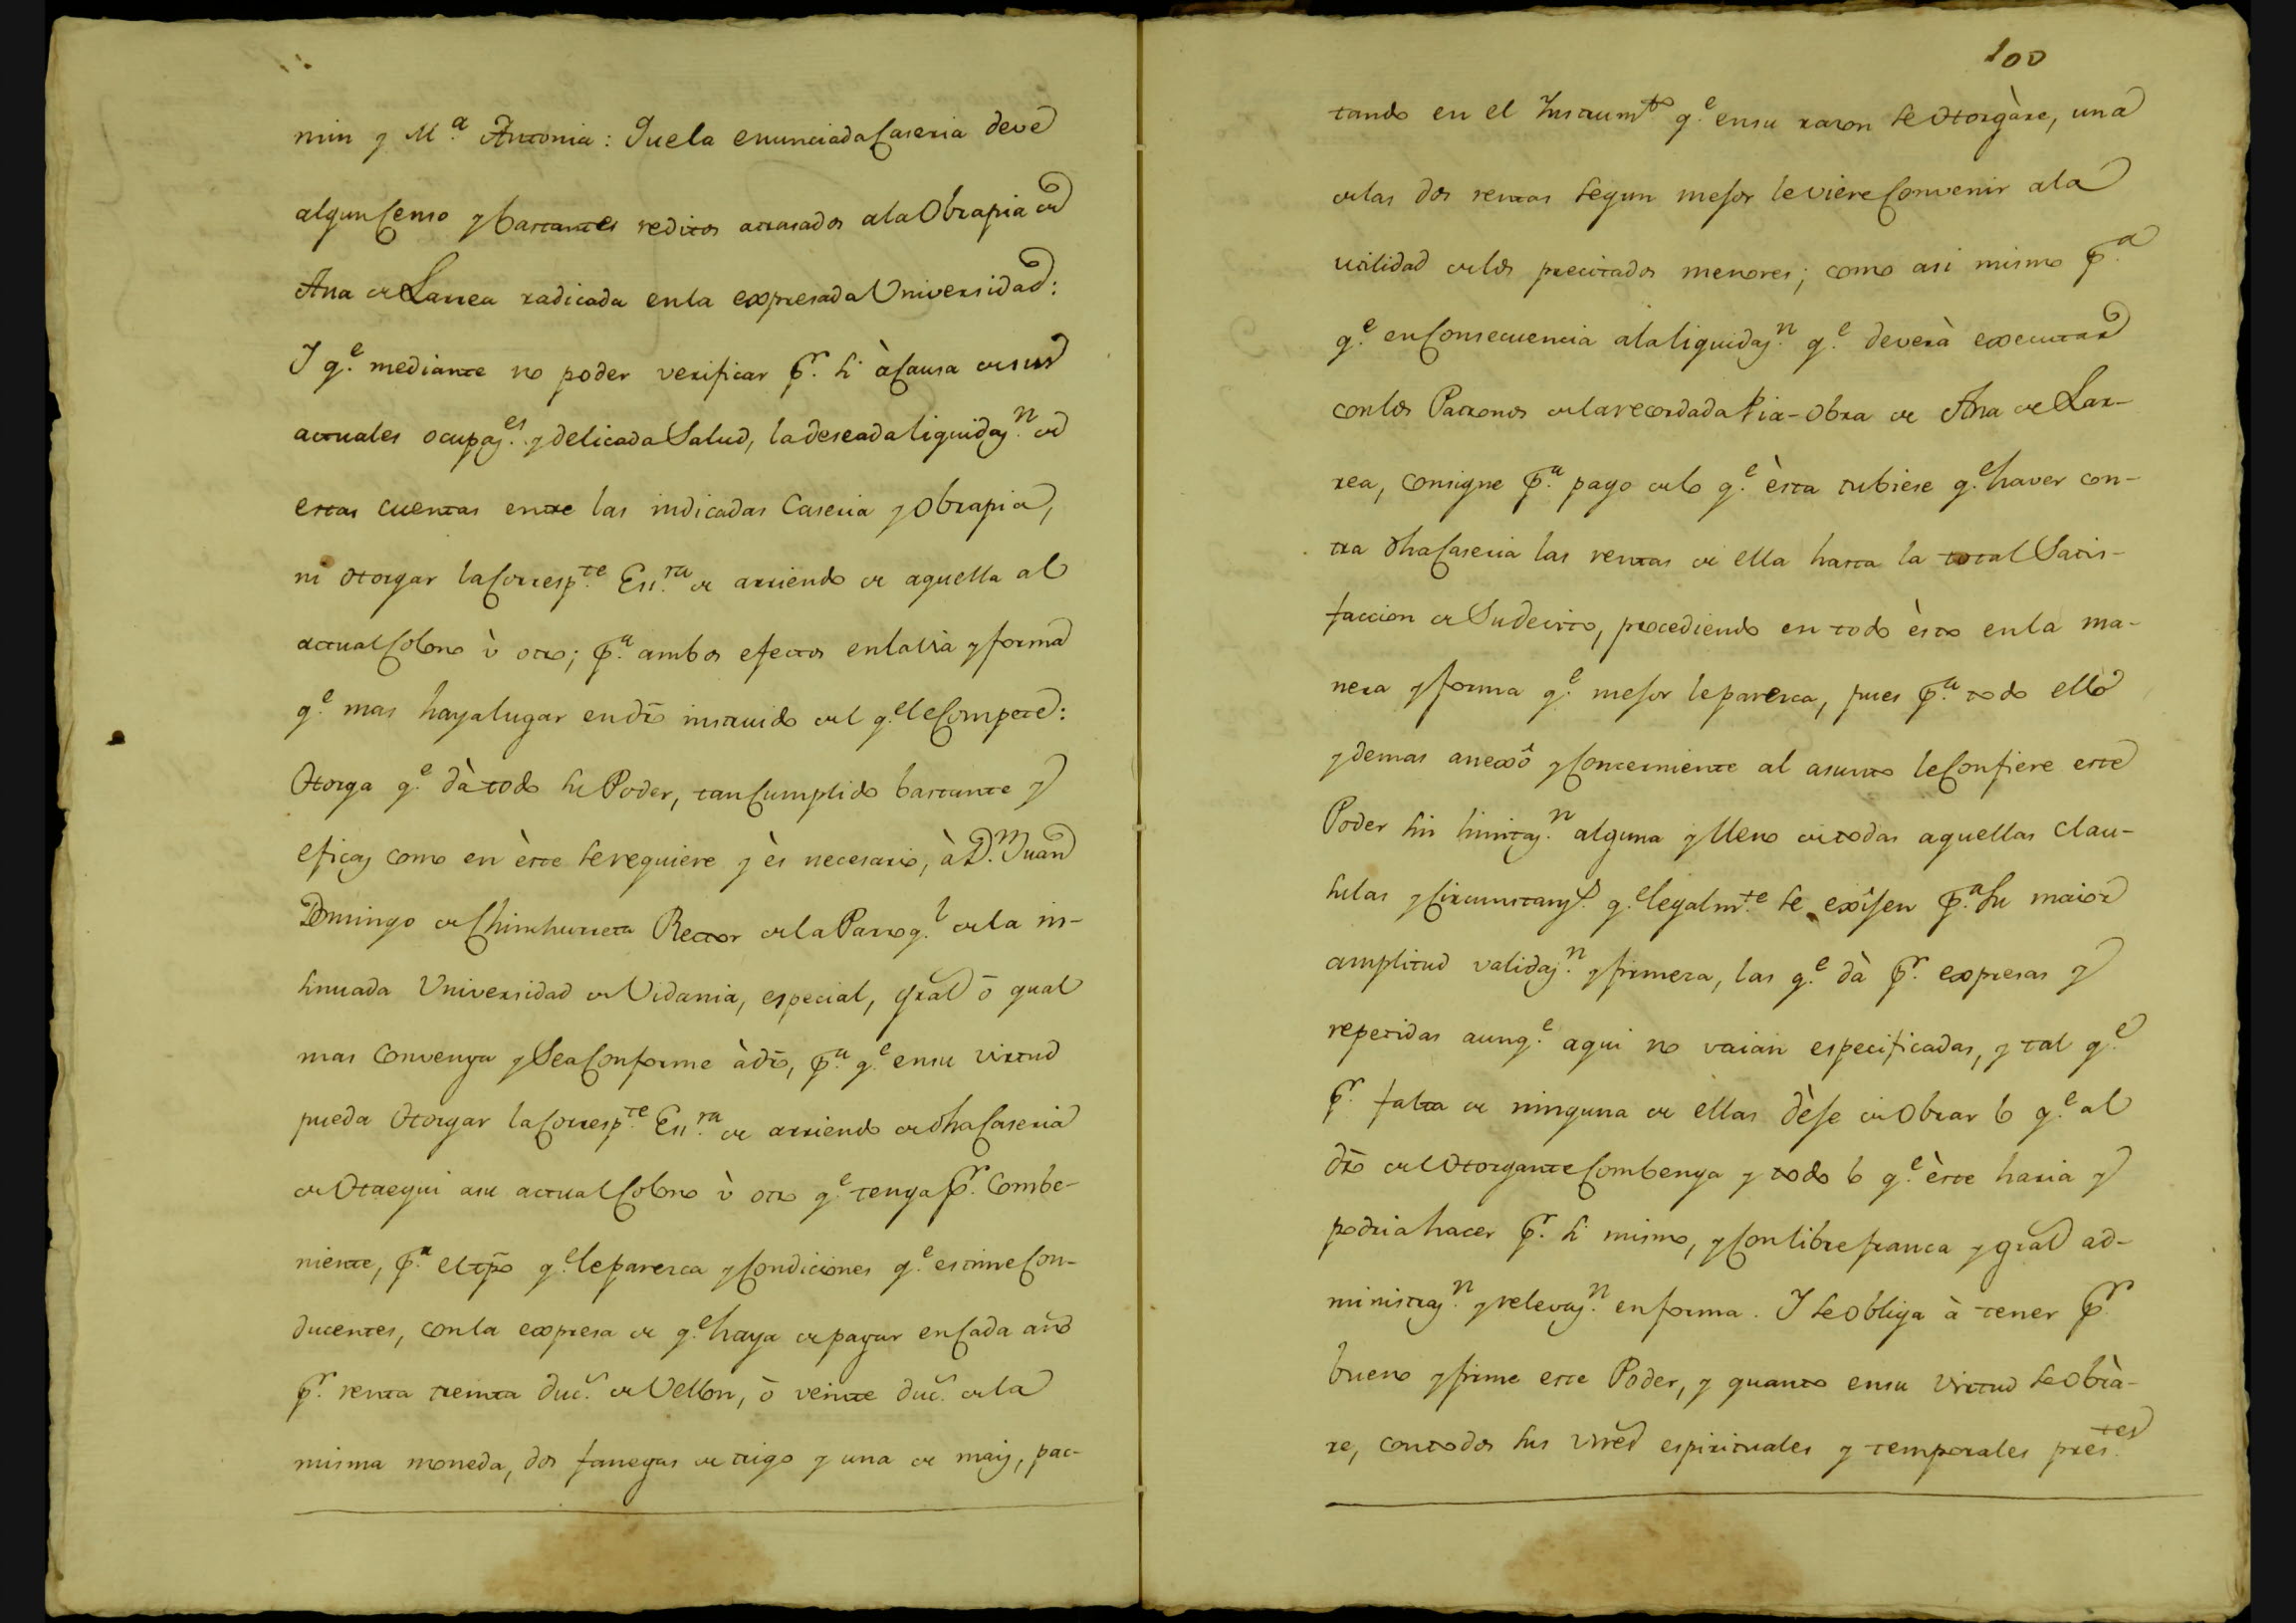 min y M.ª Antonia: Que la enunciada Caseria deve
algun Censo y bastantes reditos atrasados a la Obrapia de
Ana de Larrea radicada en la expresada Universidad:
I q.e mediante no poder verificar p.r si à causa de sus
actuales ocupaz.es y delicada Salud, la deseada liquidaz.n de
estas cuentas entre las indicadas Caseria y Obrapia,
ni otorgar la Corresp.te Ess.ra de arriendo de aquella al
actual Colono ù otro; p.a ambos efectos en la via y forma
q.e mas haya lugar en dro instruido del q.e le Compete:
Otorga q.e dà todo su Poder, tan Cumplido bastante y
eficaz como en èste se requiere y ès necesario, à D.n Juan
Domingo de Chinchurreta Rector de la Parroq.l de la in-
sinuada Universidad de Vidania, especial, gral ò qual
mas Convenga y Sea Conforme à dro, p.a q.e en su virtud
pueda Otorgar la Corresp.te Ess.ra de arriendo de dha Caseria
de Otaegui a su actual Colono ù otro q.e tenga p.r Combe-
niente, p.a el tpo q.e le paresca y Condiciones q.e estime Con-
ducentes, con la expresa de q.e haya de pagar en Cada año
p.r renta treinta duc.s de Vellon, ò veinte duc.s de la
misma moneda, dos fanegas de trigo y una de maiz, pac-
100
tando en el Instrum.to q.e en su razon se Otorgàre, una
de las dos rentas segun mejor le viere Convenir a la
utilidad de los precitados menores; como asi mismo p.a
q.e en Consecuencia a la liquidaz.n q.e deverà executar
con los Patronos de la recordada Pia-Obra de Ana de Lar-
rea, consigne p.a pago de lo q.e èsta tubiese q.e haver con-
tra dha Caseria las rentas de ella hasta la total Satis-
faccion de Su devito, procediendo en todo èsto en la ma-
nera y forma q.e mejor le paresca, pues p.a todo ello
y demas anexò y Concerniente al asunto le Confiere este
Poder sin limitaz.n alguna y lleno de todas aquellas clau-
sulas y Circumstanz.s q.e legalm.te se exîjen p.a Su maior
amplitud validaz.n y firmeza, las q.e dà p.r expresas y
repetidas aunq.e aqui no vaian especificadas, y tal q.e
p.r falta de ninguna de ellas dèje de Obrar lo q.e al
dro del Otorgante Combenga y todo lo q.e èste haria y
podria hacer p.r si mismo, y Con libre franca y gral ad-
ministraz.n y relevaz.n en forma. I se Obliga à tener p.r
bueno y firme este Poder, y quanto en su virtud se Obrà-
re, con todos sus vnes espirituales y temporales pres.tes